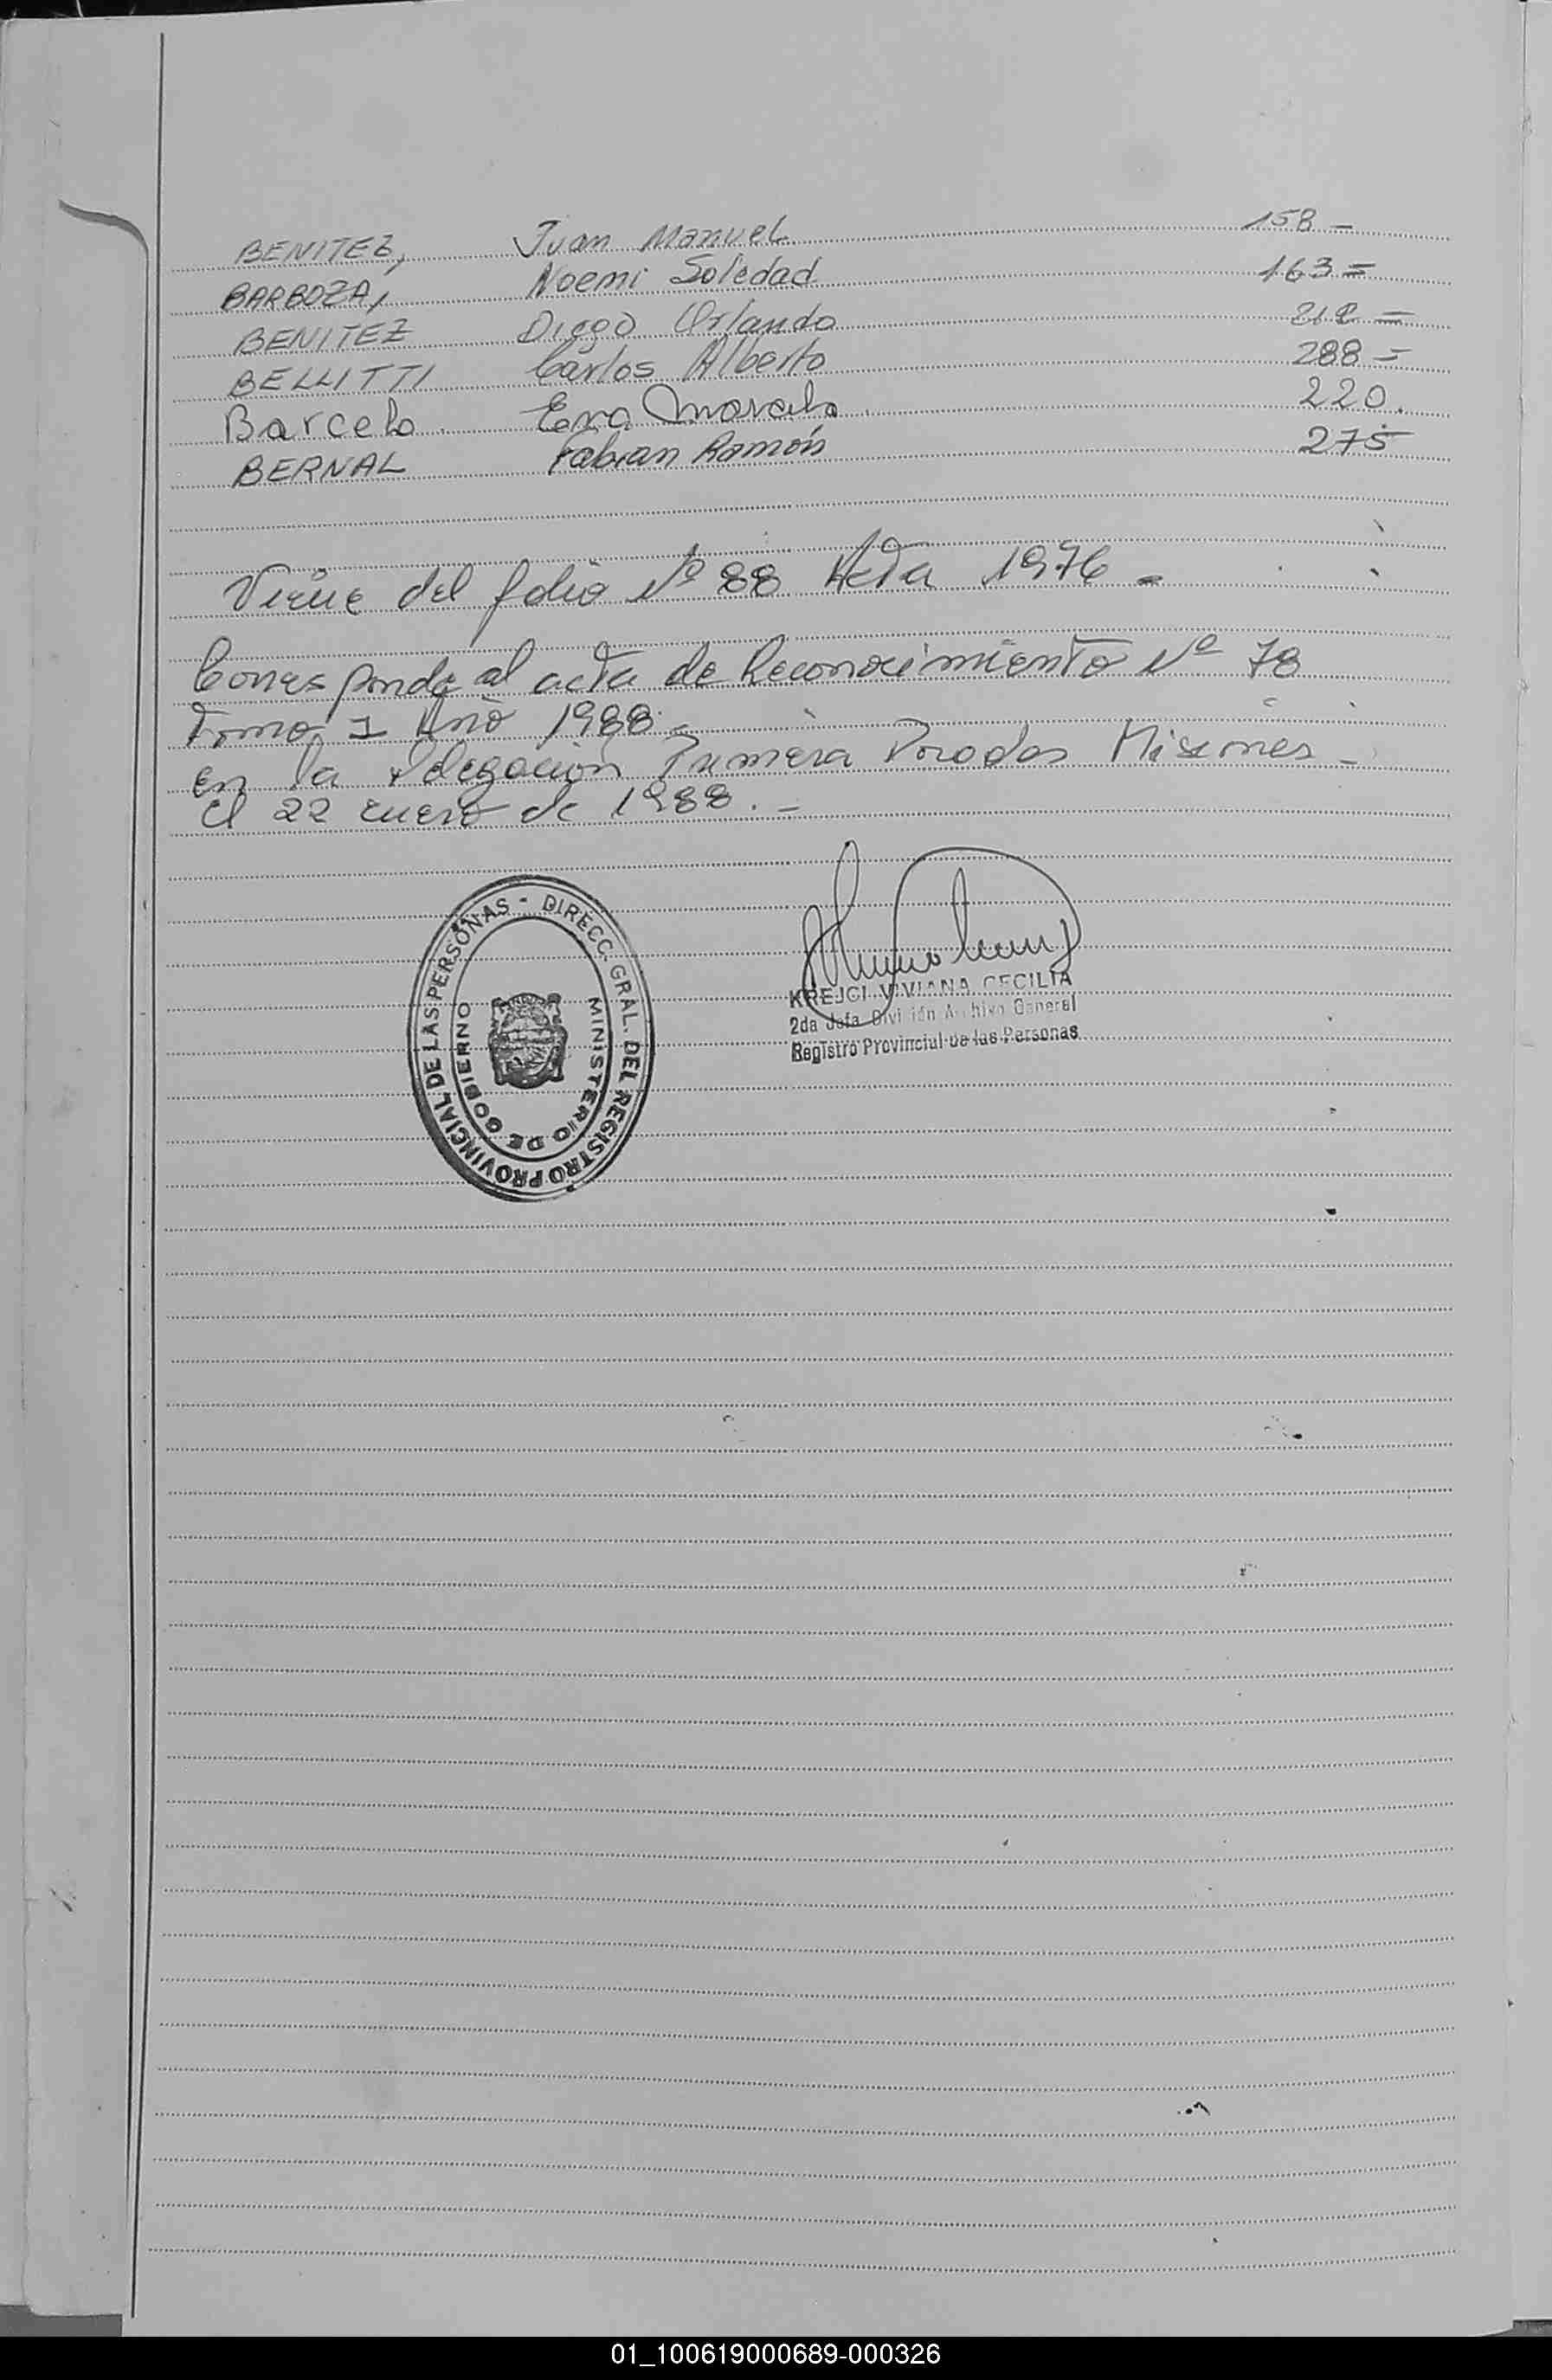 BENITEZ, Juan Manuel 158 -
BARBOZA, Noemi Soledad 163 =
BENITEZ Diego Orlando 212 =
BELLITTI Carlos Alberto 288 =
Barcelo Marcelo 220.
BERNAL Fabian Ramón 275
Viene del folio Nº 88 Acta 1976 -
Corresponde al acta de Reconocimiento Nº 78
Tomo 1 Año 1988 -
en la Delegación Primera Posadas Misiones -
el 22 enero de 1988. -
DIRECC. GRAL. DEL REGISTRO PROVINCIAL DE LAS PERSONAS -
MINISTERIO DE GOBIERNO
KREJCI VIVIANA CECILIA
2da Jefa División Archivo General
Registro Provincial de las Personas
01_100619000689-000326